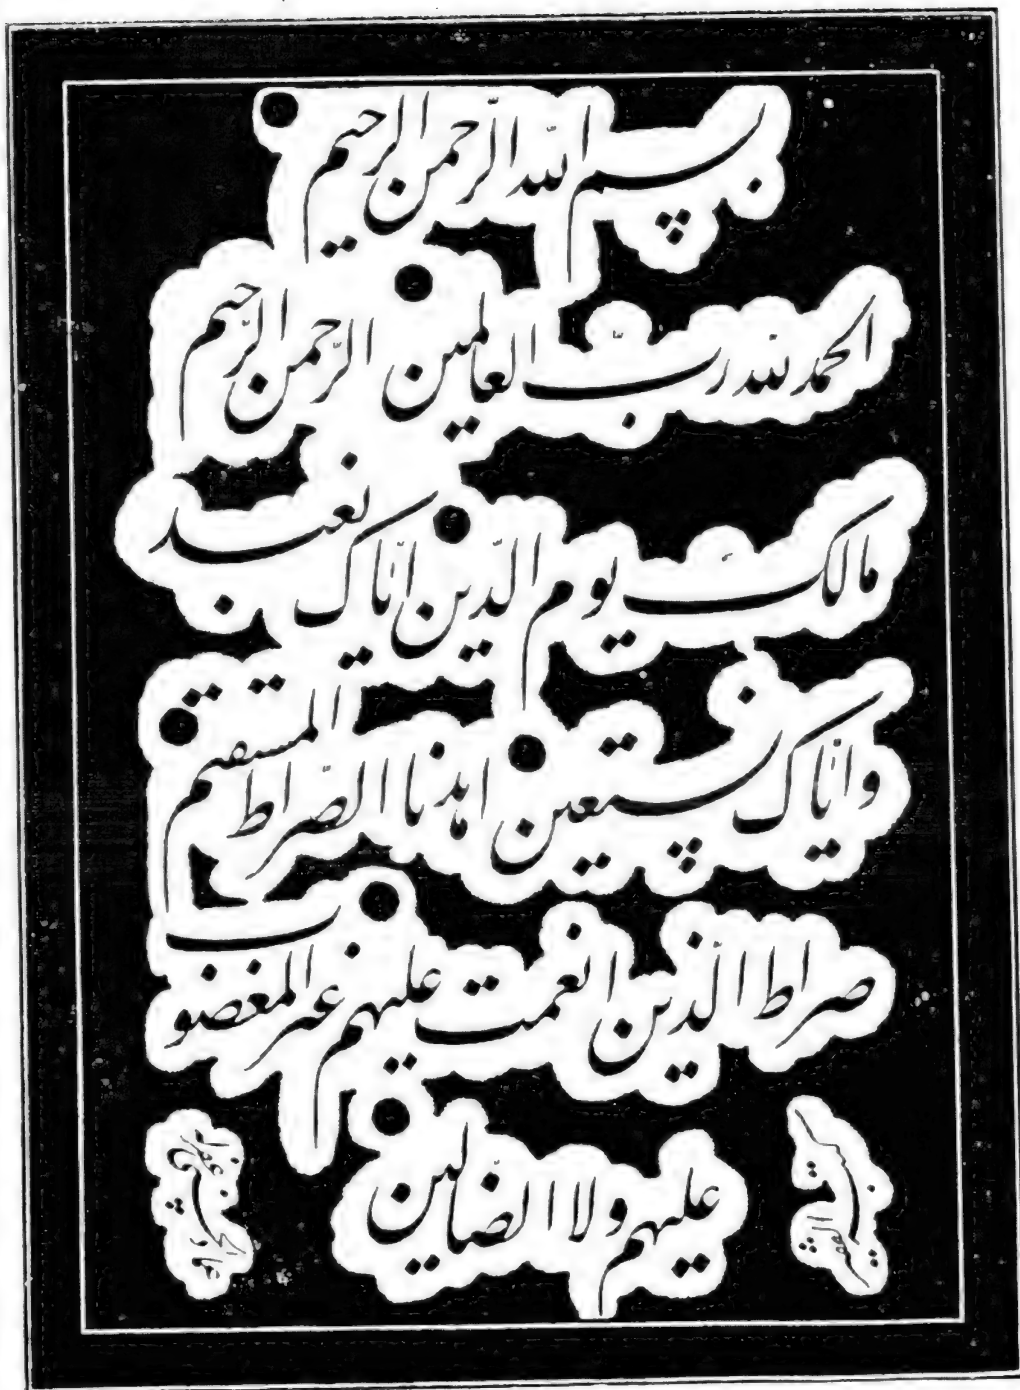 بسم الله الرّحمن الرحیم
الحمد لله ربّ العالمین الرّحمن الرّحیم
مالک یوم الدّین ایّاک نعبد
و ایّاک نستعین اهدنا الصّراط المستقیم
صراط الّذین انعمت علیهم غیر المغضوب
علیهم ولا الضّالین
کتبه الفقیر